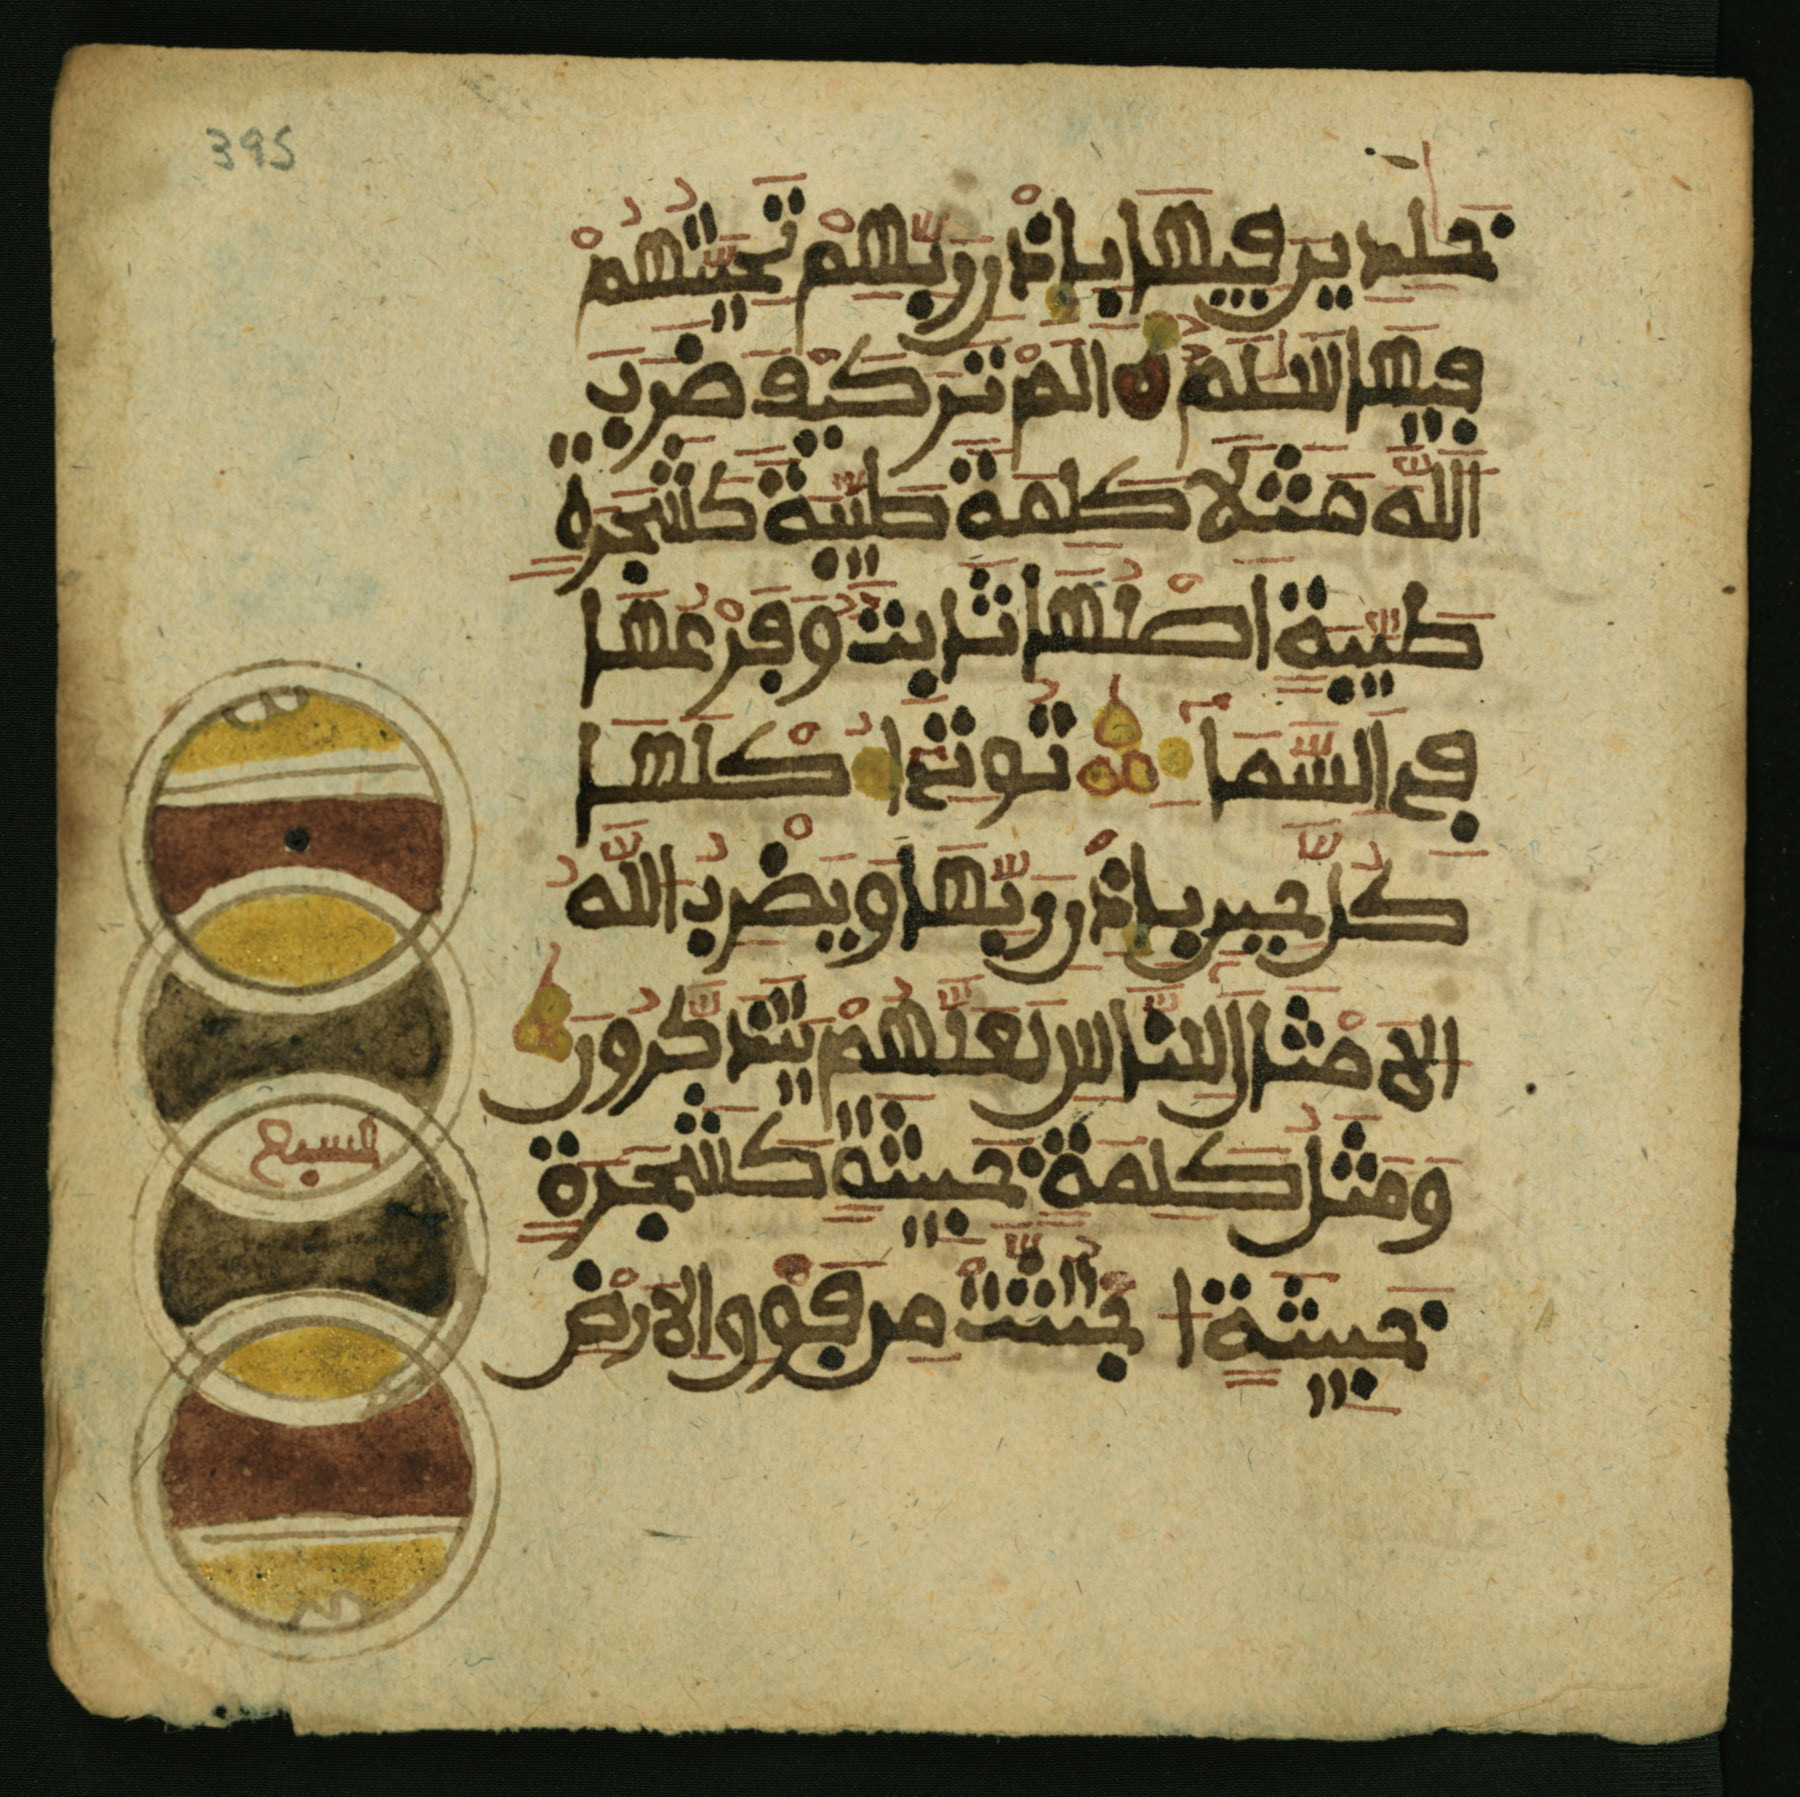 395
خٰلدين فيها باذن ربّهمْ تحيّتُهُمْ
فيها سَلٰمٌ المْ تَرَ كيْفَ ضَرَبَ
اللّهَ مَثَلا كلمَةً طيّبَةً كَشَجَرَةٍ
طيّبَةٍ اصْلُهَا ثَابتٌ وَفَرْعُهَا
في السَّمَا تُوتي اكْلَهَا
كُلَّ حينٍ باذْن رَبّهَا وَيَضْربُ اللّهُ
الامْثَالَ للنَّاس لَعَلَّهُمْ يَتَذَكَّرُونَ
وَمَثَلُ كَلمَةٍ خَبيثَةٍ كَشَجَرَةٍ
خَبيثَةٍ اجْتُثَّتْ منْ فَوْق الارْض
السبع